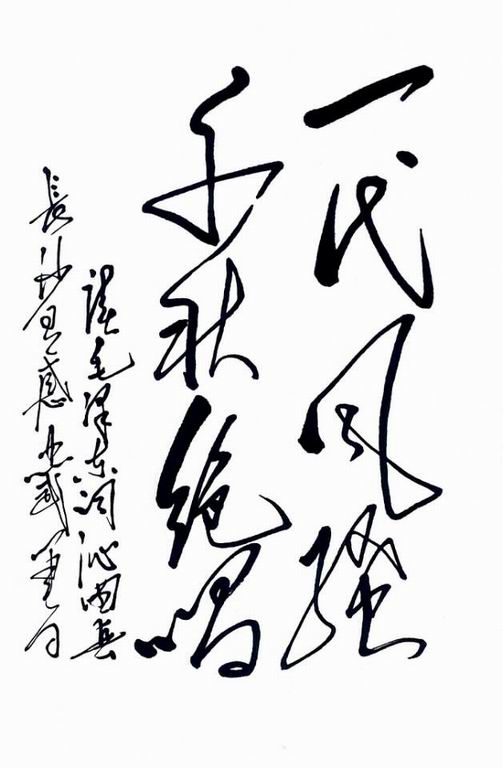 一代风骚
千秋绝唱
读毛泽东词沁园春
長沙有感